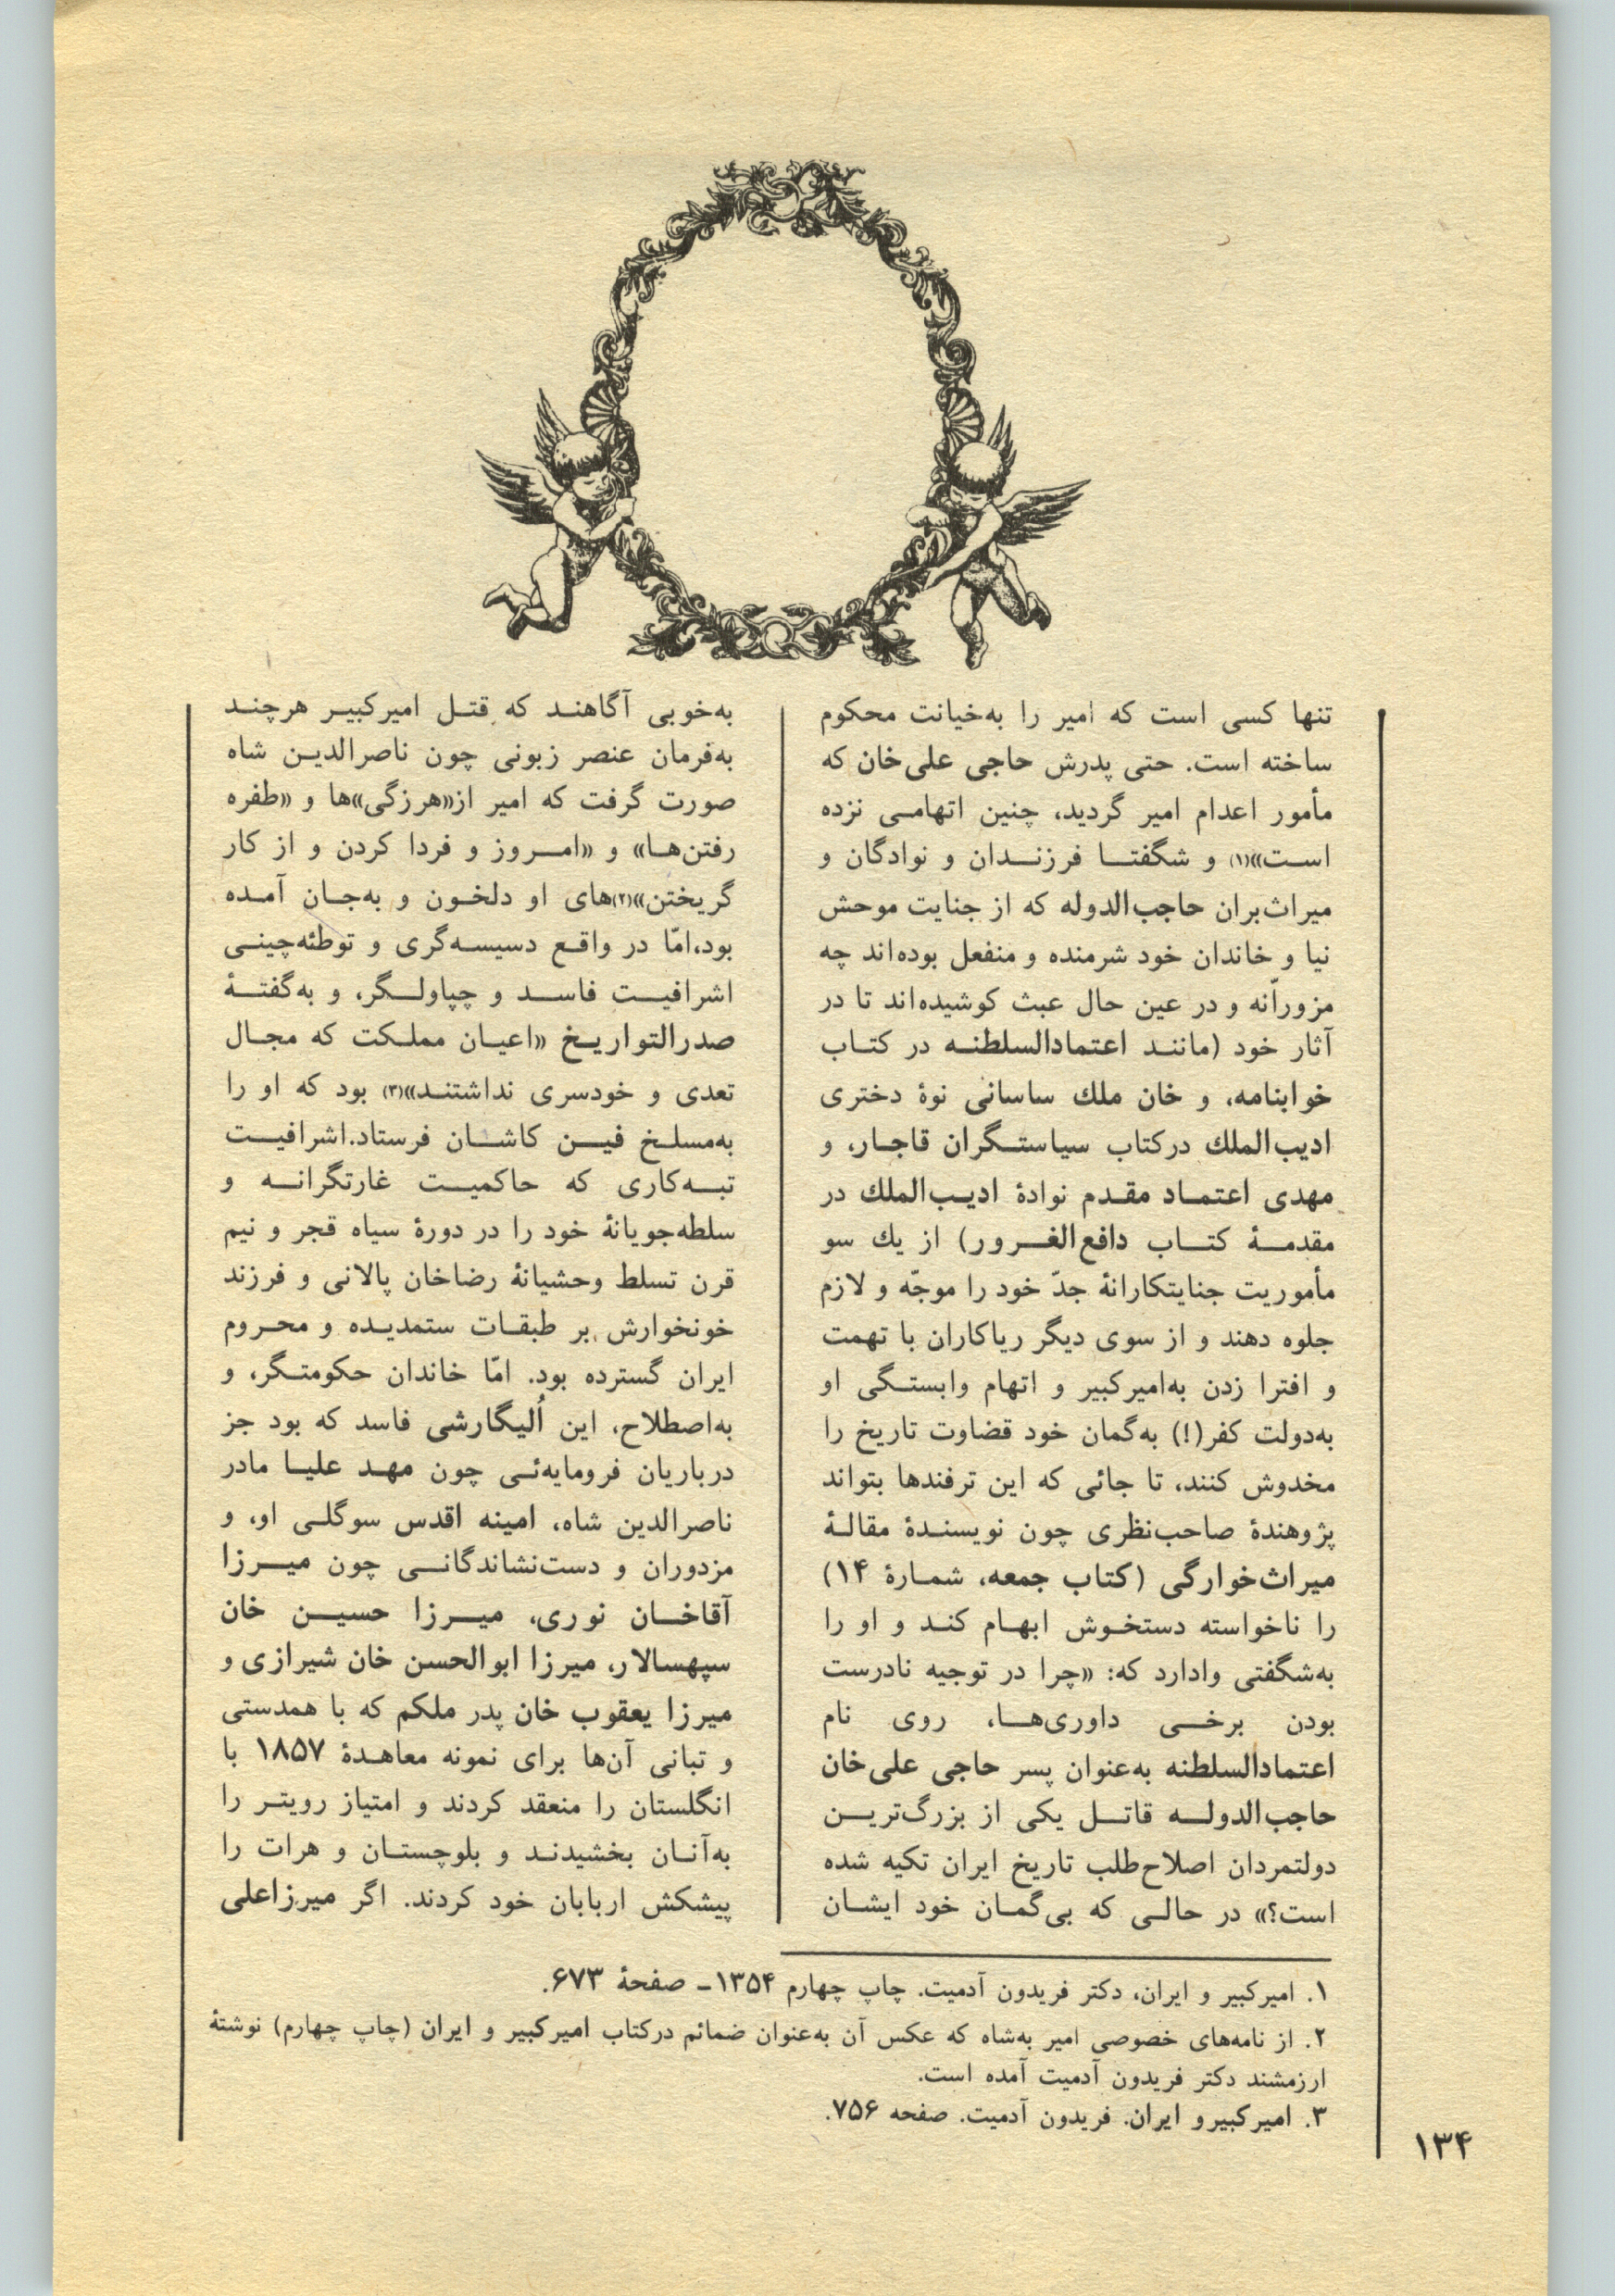 تنها کسی است که امیر را به‌خیانت محکوم
ساخته است. حتی پدرش حاجی علی‌خان که
مأمور اعدام امیر گردید، چنین اتهامی نزده
است»(۱) و شگفتا فرزندان و نوادگان و
میراث‌بران حاجب‌الدوله که از جنایت موحش
نیا و خاندان خود شرمنده و منفعل بوده‌اند چه
مزورانه و در عین حال عبث کوشیده‌اند تا در
آثار خود (مانند اعتمادالسلطنه در کتاب
خوابنامه، و خان ملك ساسانی نوهٔ دختری
ادیب‌الملك درکتاب سیاستگران قاجار، و
مهدی اعتماد مقدم نوادهٔ ادیب‌الملك در
مقدمهٔ کتاب دافع‌الغرور) از یك سو
مأموریت جنایتکارانهٔ جدّ خود را موجّه و لازم
جلوه دهند و از سوی دیگر ریاکاران با تهمت
و افترا زدن به‌امیرکبیر و اتهام وابستگی او
به‌دولت کفر(!) به‌گمان خود قضاوت تاریخ را
مخدوش کنند، تا جائی که این ترفندها بتواند
پژوهندهٔ صاحب‌نظری چون نویسندهٔ مقالهٔ
میراث‌خوارگی (کتاب جمعه، شمارهٔ ۱۴)
را ناخواسته دستخوش ابهام کند و او را
به‌شگفتی وادارد که: «چرا در توجیه نادرست
بودن برخی داوری‌ها، روی نام
اعتمادالسلطنه به‌عنوان پسر حاجی علی‌خان
حاجب‌الدوله قاتل یکی از بزرگ‌ترین
دولتمردان اصلاح‌طلب تاریخ ایران تکیه شده
است؟» در حالی که بی‌گمان خود ایشان
به‌خوبی آگاهند که قتل امیرکبیر هرچند
به‌فرمان عنصر زبونی چون ناصرالدین شاه
صورت گرفت که امیر از«هرزگی»ها و «طفره
رفتن‌ها» و «امروز و فردا کردن و از کار
گریختن»(۲)های او دلخون و به‌جان آمده
بود،امّا در واقع دسیسه‌گری و توطئه‌چینی
اشرافیت فاسد و چپاولگر، و به‌گفتهٔ
صدرالتواریخ «اعیان مملکت که مجال
تعدی و خودسری نداشتند»(۳) بود که او را
به‌مسلخ فین کاشان فرستاد.اشرافیت
تبه‌کاری که حاکمیت غارتگرانه و
سلطه‌جویانهٔ خود را در دورهٔ سیاه قجر و نیم
قرن تسلط وحشیانهٔ رضاخان پالانی و فرزند
خونخوارش بر طبقات ستمدیده و محروم
ایران گسترده بود. امّا خاندان حکومتگر، و
به‌اصطلاح، این اُلیگارشی فاسد که بود جز
درباریان فرومایه‌ئی چون مهد علیا مادر
ناصرالدین شاه، امینه اقدس سوگلی او، و
مزدوران و دست‌نشاندگانی چون میرزا
آقاخان نوری، میرزا حسین خان
سپهسالار، میرزا ابوالحسن خان شیرازی و
میرزا یعقوب خان پدر ملکم که با همدستی
و تبانی آن‌ها برای نمونه معاهدهٔ ۱۸۵۷ با
انگلستان را منعقد کردند و امتیاز رویتر را
به‌آنان بخشیدند و بلوچستان و هرات را
پیشکش اربابان خود کردند. اگر میرزاعلی
۱. امیرکبیر و ایران، دکتر فریدون آدمیت. چاپ چهارم ۱۳۵۴ـ صفحهٔ ۶۷۳.
۲. از نامه‌های خصوصی امیر به‌شاه که عکس آن به‌عنوان ضمائم درکتاب امیرکبیر و ایران (چاپ چهارم) نوشتهٔ
ارزمشند دکتر فریدون آدمیت آمده است.
۳. امیرکبیرو ایران. فریدون آدمیت. صفحه ۷۵۶.
۱۳۴